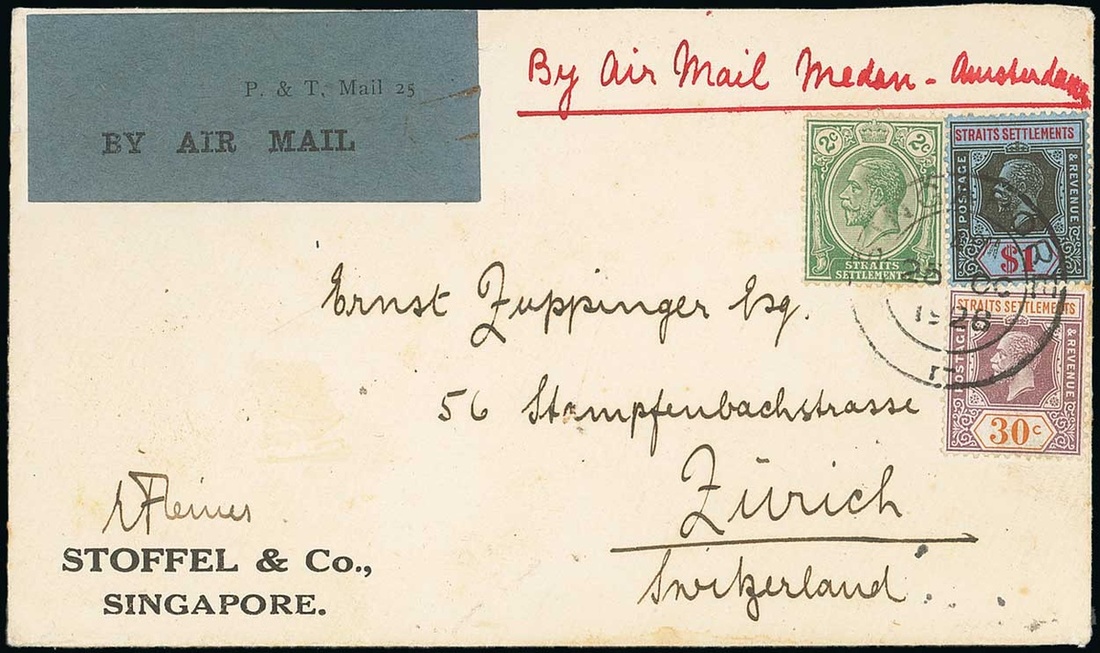 P. & T. Mail 25
BY AIR MAIL
By Air Mail Medan - Amsterdam
2c 2c
STRAITS
SETTLEMENTS
STRAITS SETTLEMENTS
POSTAGE & REVENUE
$1
STRAITS SETTLEMENTS
POSTAGE & REVENUE
30c
1928
Ernst Zuppinger Esq.
56 Stampfenbachstrasse
Zürich
Switzerland.
STOFFEL & Co.,
SINGAPORE.